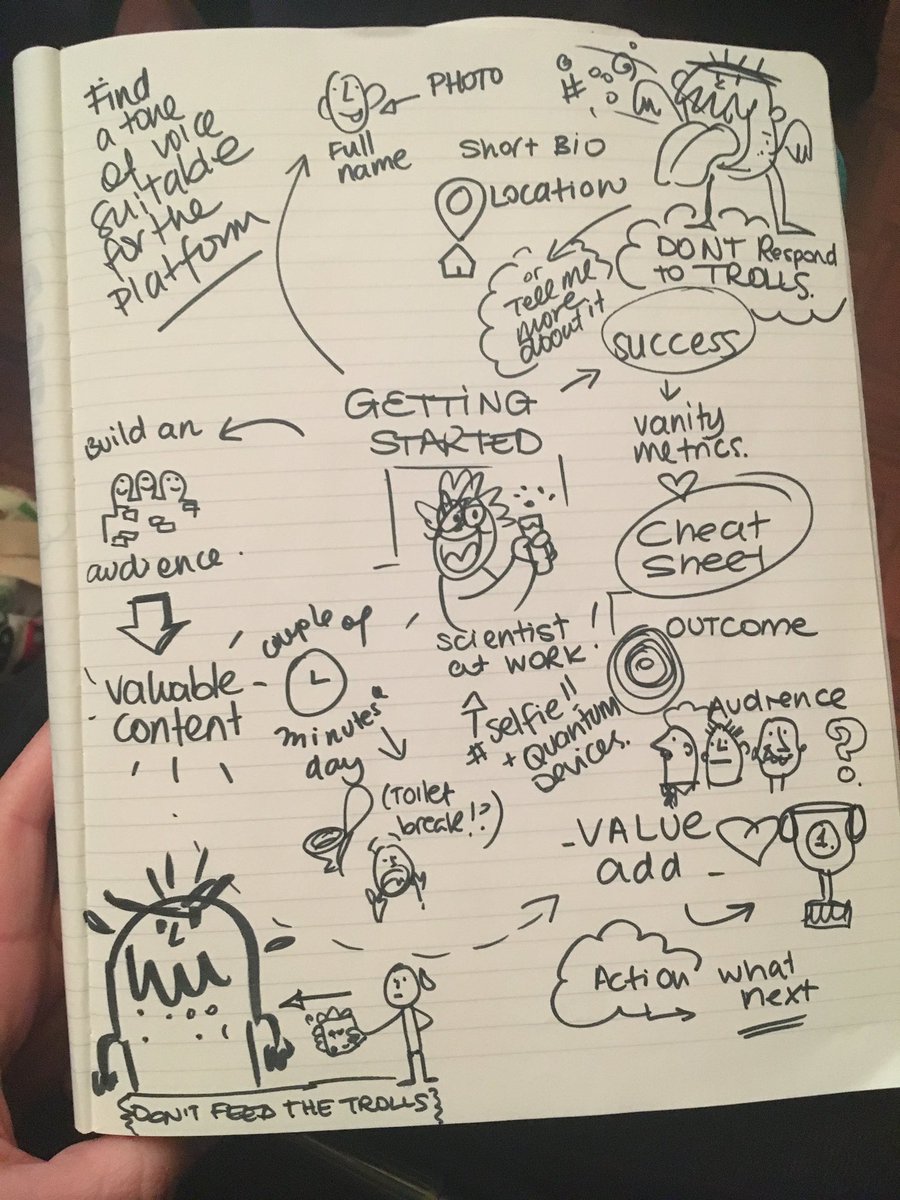 Find
a tone
of voice
suitable
for the
platform
PHOTO
Full
name
Short Bio
Location
#
DON'T Respond
to TROLLS.
or
Tell me
more
about it
success
vanity
metrics.
Cheat
Sheet
GETTING
STARTED
Build an
audience.
valuable
content
couple of
minutes a
day
(Toilet
break!?)
scientist
at WORK!
# selfie!!
+ Quantum
Devices.
OUTCOME
Audience
?
VALUE
add
1.
Action
what
next
DON'T FEED THE TROLLS